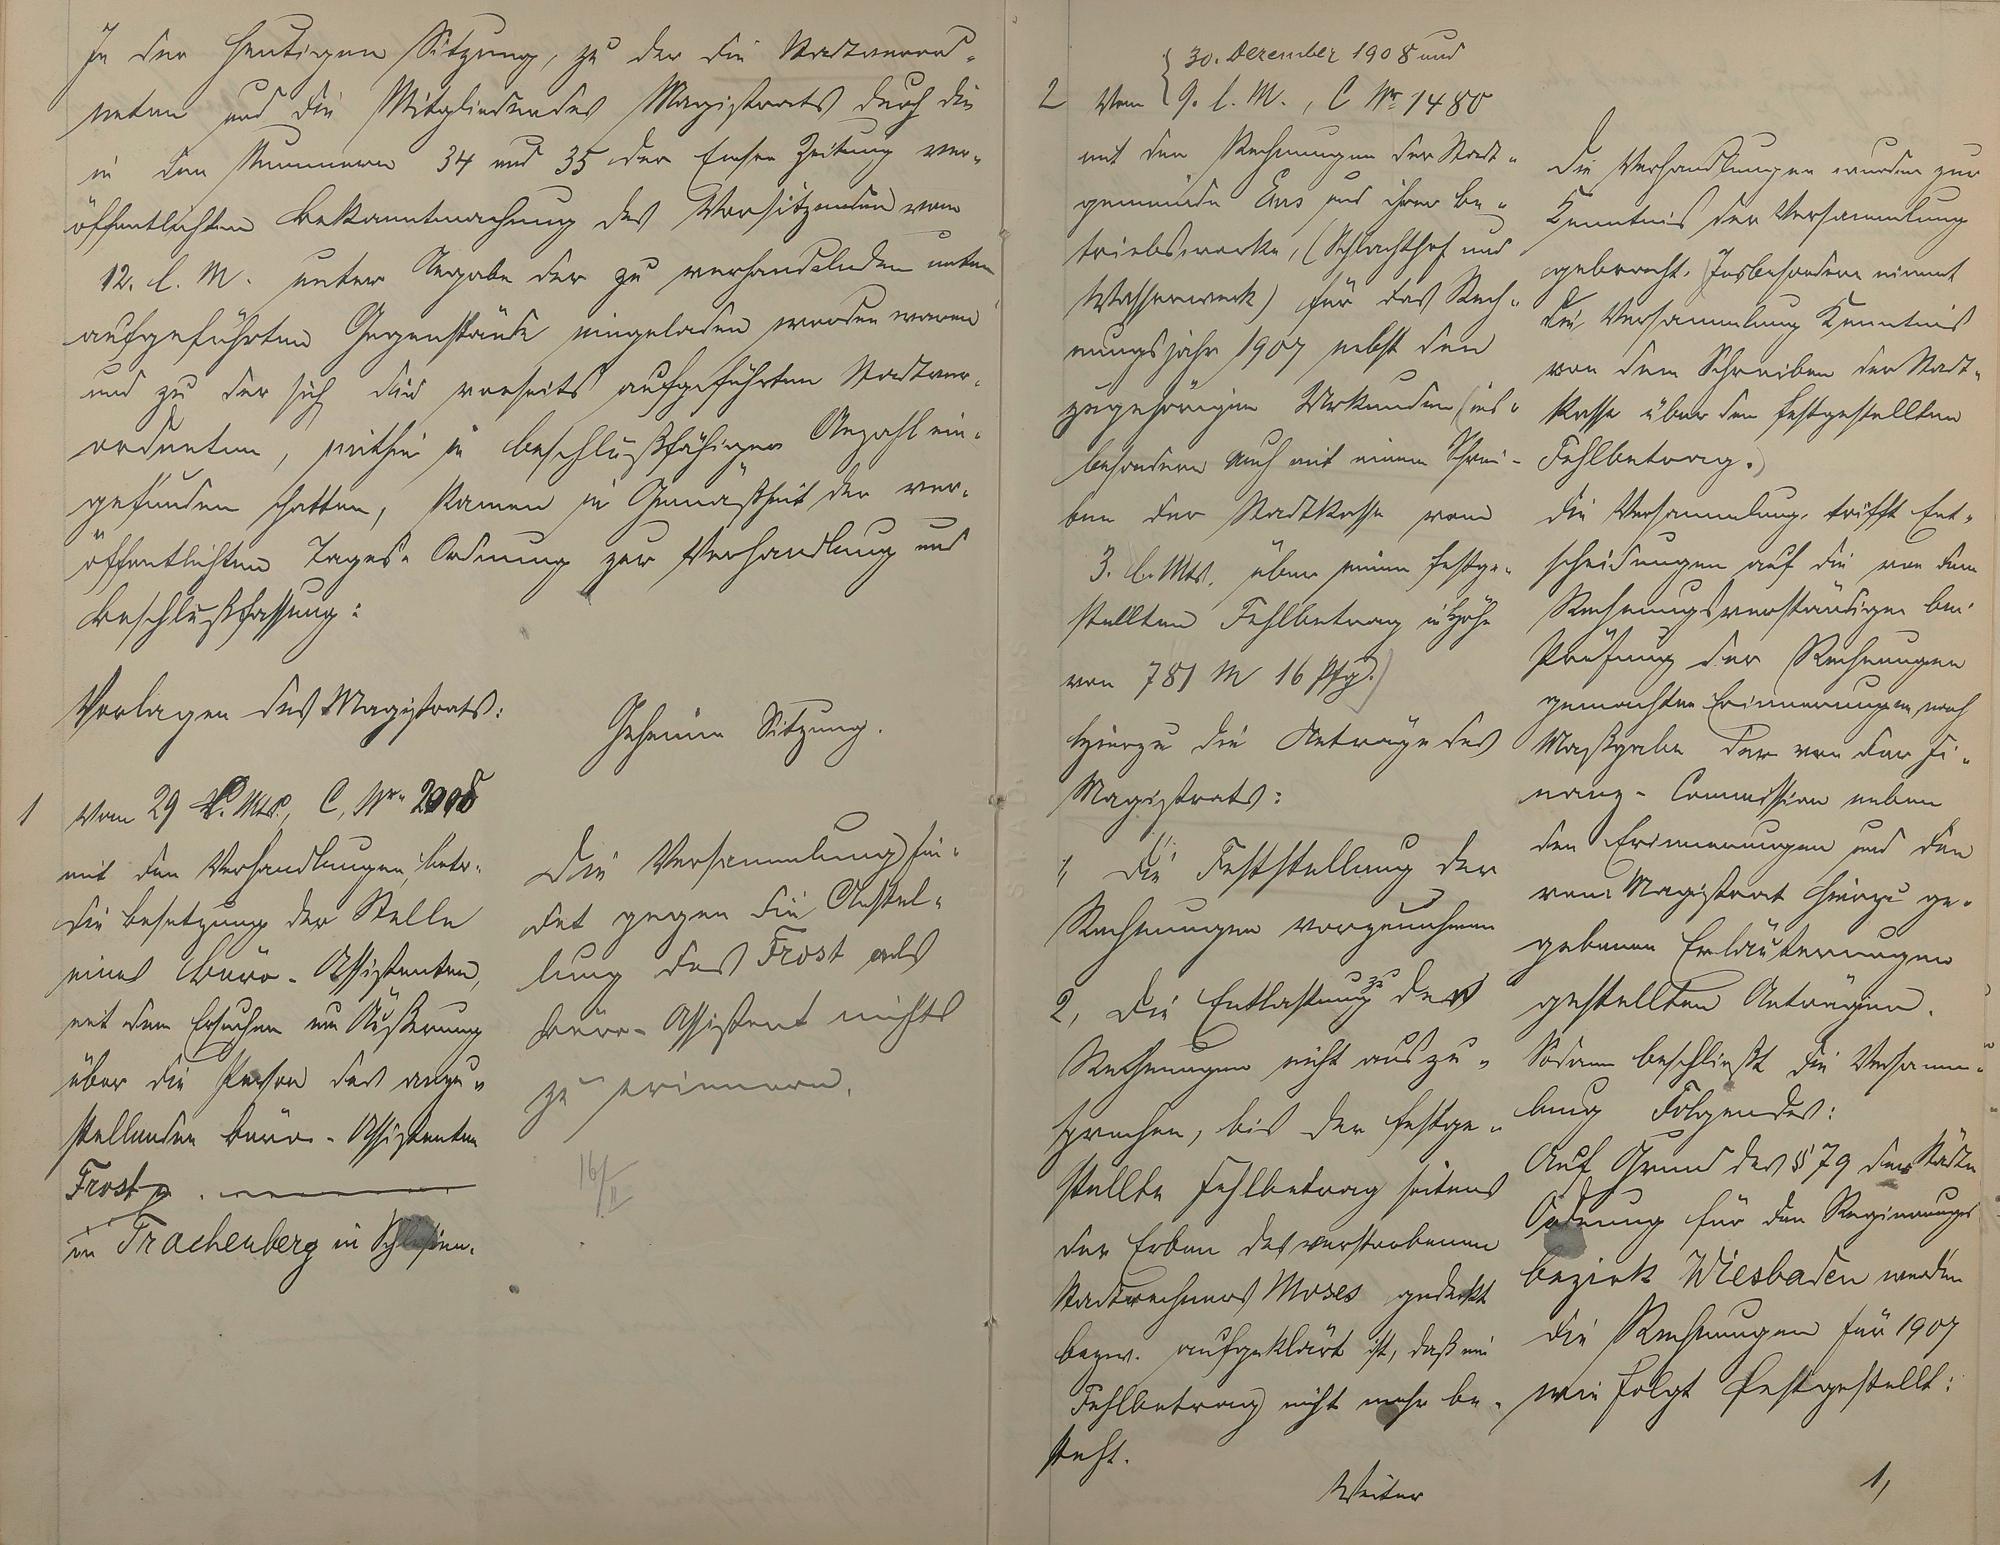 In der heutigen Sitzung, zu der die Stadtverord-
neten und die Mitglieder des Magistrats durch die
in den Nummern 34 und 35 der Emser Zeitung ver-
öffentlichten Bekanntmachung des Vorsitzenden vom
12. l. M. unter Angabe der zu verhandelnden unten
aufgeführten Gegenstände eingeladen worden waren
und zu der sich die vorseits aufgeführten Stadtver-
ordneten, mithin in beschlußfähiger Anzahl ein-
gefunden hatten, kamen in Gemäßheit der ver-
öffentlichten Tages-Ordnung zur Verhandlung und
Beschlußfassung:
Vorlagen des Magistrats:
Geheime Sitzung.
1 Vom 29 v. Mts., C, Nr.
mit den Verhandlungen, betr.
die Besetzung der Stelle
eines Büro-Assistenten,
mit dem Ersuchen um Äußerung
über die Person des anzu-
stellenden Büro-Assistenten
Frost
in Trachenberg in Schlesien.
Die Versammlung fin-
det gegen die Anstel-
lung des Frost als
Büro-Assistent nichts
zu erinnern.
16/II
30. Dezember 1908 und
2 Vom 9. l. M., C Nr. 1480
mit den Rechnungen der Stadt-
gemeinde Ems und ihrer Be-
triebswerke, (Schlachthof und
Wasserwerk) für das Rech-
nungsjahr 1907 nebst den
zugehörigen Urkunden (ins-
besondere auch mit einem Schrei-
ben der Stadtkasse vom
3. l. Mts. über einen festge-
stellten Fehlbetrag in Höhe
von 781 M 16 Pfg.)
Hierzu die Anträge des
Magistrats:
1, Die Feststellung der
Rechnungen vorzunehmen
2, Die Entlastung zu den
Rechnungen nicht auszu-
sprechen, bis der festge-
stellte Fehlbetrag seitens
der Erben des verstorbenen
Stadtrechners Moses gedeckt
bezw. aufgeklärt ist, daß ein
Fehlbetrag nicht mehr be-
steht.
Weiter
Die Verhandlungen wurden zur
Kenntnis der Versammlung
gebracht. (Insbesondere nimmt
die Versammlung Kenntnis
von dem Schreiben der Stadt-
kasse über den festgestellten
Fehlbetrag.)
Die Versammlung trifft Ent-
scheidungen auf die von dem
Rechnungsverständigen bei
Prüfung der Rechnungen
gemachten Erinnerungen nach
Maßgabe der von der Fi-
nanz-Commission neben
den Erinnerungen und den
vom Magistrat hierzu ge-
gebenen Erläuterungen
gestellten Anträgen.
Sodann beschließt die Versamm-
lung Folgendes:
Auf Grund des § 79 der Städte
Ordnung für den Regierungs
bezirk Wiesbaden werden
die Rechnungen für 1907
wie folgt festgestellt:
1,